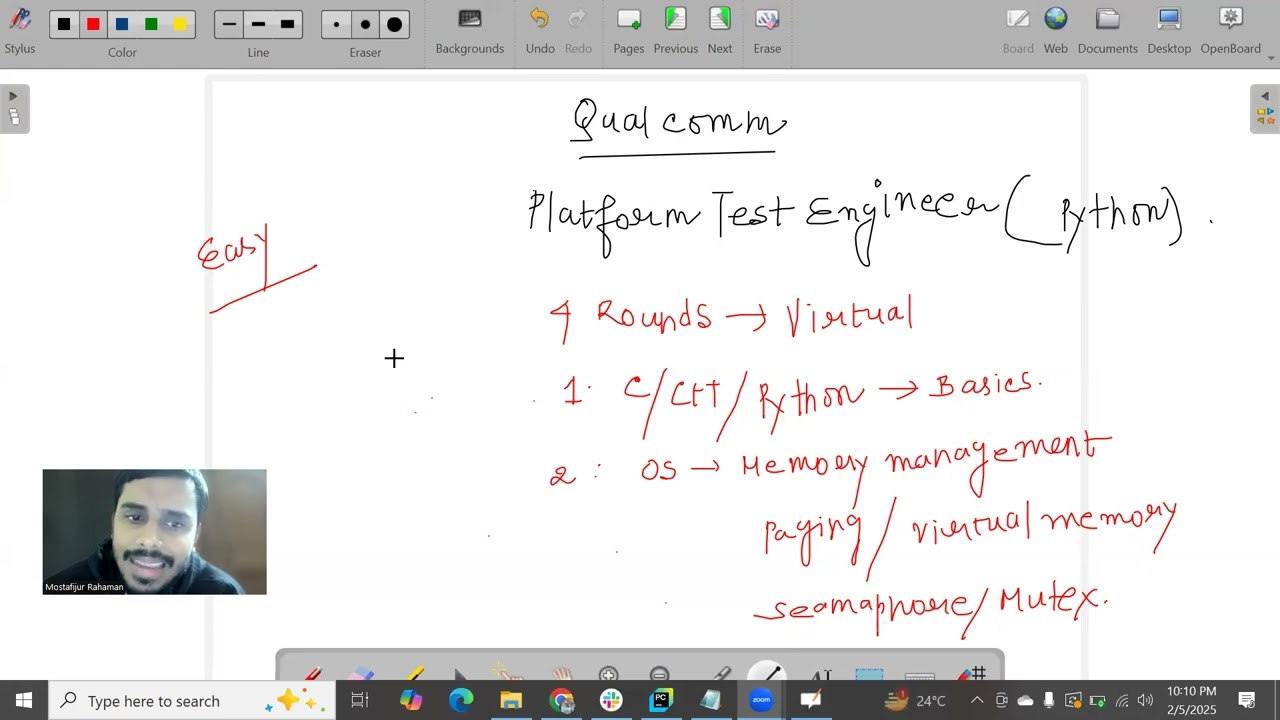 Stylus
Color
Line
Eraser
Backgrounds
Undo
Redo
Pages
Previous
Next
Erase
Board
Web
Documents
Desktop
OpenBoard
Qualcomm
Platform Test Engineer (Python).
Easy
4 Rounds → Virtual
1. C/C++/Python → Basics.
2: OS → Memory management
Paging / Virtual memory
Seamaphore/Mutex.
Mostafijur Rahaman
Type here to search
PC
zoom
24°C
10:10 PM
2/5/2025